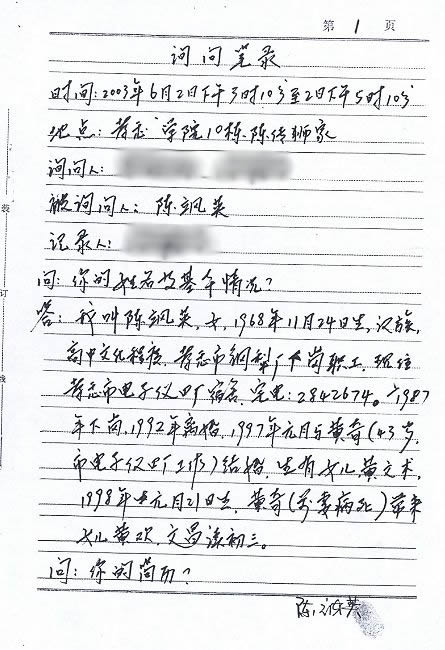 第 1 页
询问笔录
时间:2003年6月2日下午3时10分至2日下午5时10分
地点:学院10栋陈传狮家
询问人:
被询问人:陈飒英
记录人:
问:你的姓名及基本情况?
答:我叫陈飒英,女,1968年11月24日生,汉族,
高中文化程度,市钢犁厂下岗职工,现住
市电子仪田厂宿舍,宅电:2842674。1987
年下岗,1992年离婚,1997年元月与黄奇(43岁,
市电子仪田厂工作)结婚,生有女儿黄文术,
1998年元月21日生,黄奇(前妻病死)带来
女儿黄欢,文昌读初三。
问:你的简历?
陈飒英
装
订
线